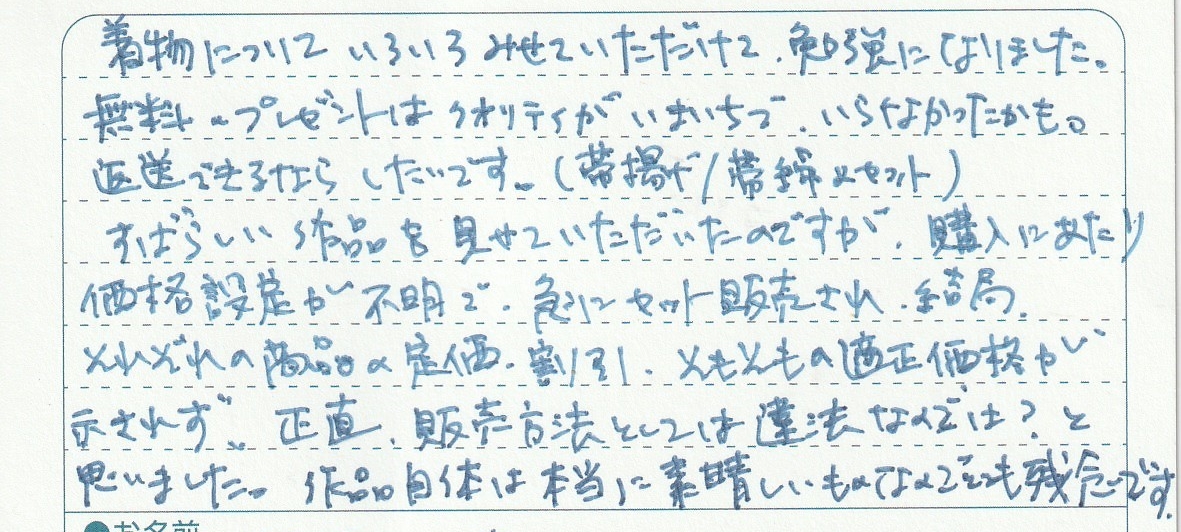 着物についていろいろみせていただけて、勉強になりました。
無料のプレゼントはクオリティがいまいちで、いらなかったかも。
返送できるなら したいです。(帯揚げ/帯締めセット)
すばらしい作品を見せていただいたのですが、購入にあたり
価格設定が不明で、急にセット販売され、結局、
それぞれの商品の定価、割引、そもそもの適正価格が
示されず、正直、販売方法としては違法なのでは?と
思いました。作品自体は本当に素晴しいものなのでとても残念です。
●お名前